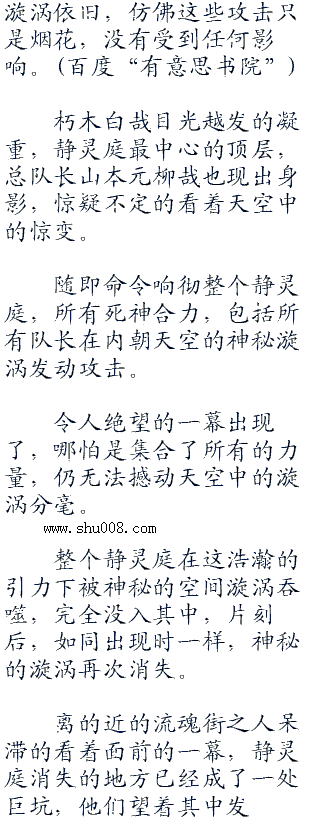 漩涡依旧，仿佛这些攻击只
是烟花，没有受到任何影
响。(百度“有意思书院”)
朽木白哉目光越发的凝
重，静灵庭最中心的顶层，
总队长山本元柳哉也现出身
影，惊疑不定的看着天空中
的惊变。
随即命令响彻整个静灵
庭，所有死神合力，包括所
有队长在内朝天空的神秘漩
涡发动攻击。
令人绝望的一幕出现
了，哪怕是集合了所有的力
量，仍无法撼动天空中的漩
涡分毫。
www.shu008.com
整个静灵庭在这浩瀚的
引力下被神秘的空间漩涡吞
噬，完全没入其中，片刻
后，如同出现时一样，神秘
的漩涡再次消失。
离的近的流魂街之人呆
滞的看着面前的一幕，静灵
庭消失的地方已经成了一处
巨坑，他们望着其中发